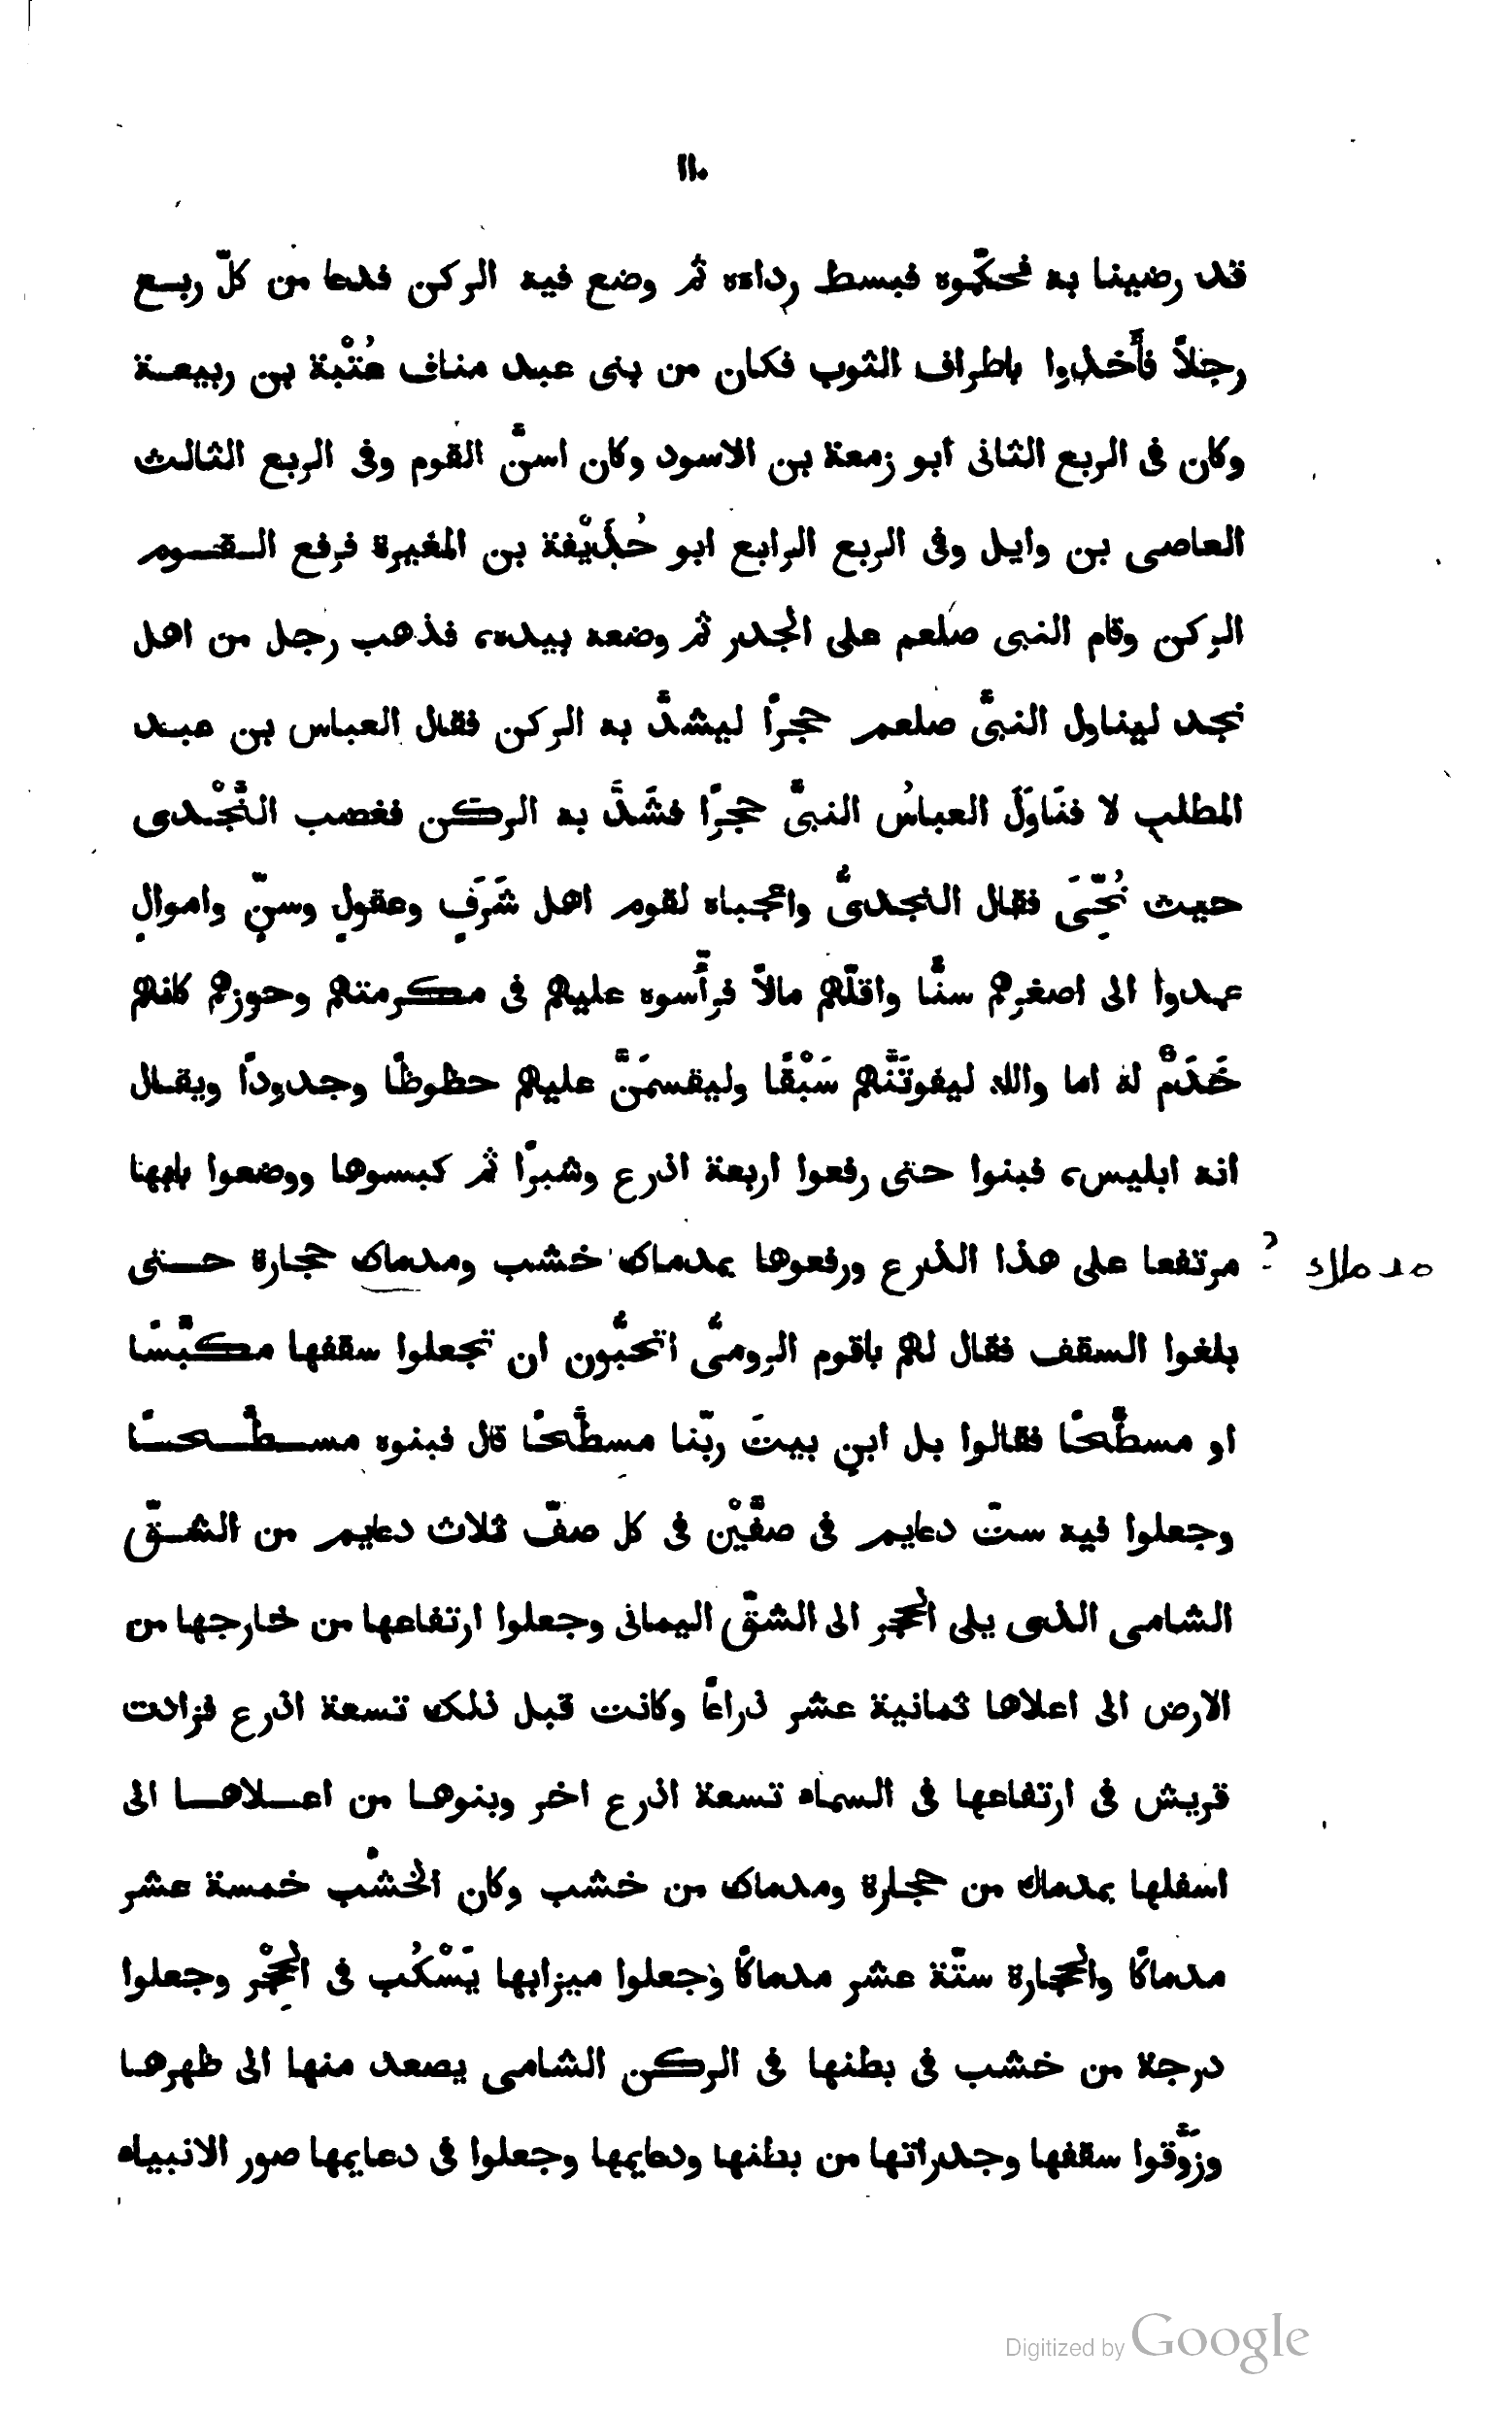 ١١٠
قد رضينا به فحكّموه فبسط رداءه ثم وضع فيه الركن فدعا من كلّ ربـع
رجلاً فأخذوا باطراف الثوب فكان من بنى عبد مناف عُتْبة بن ربيعـة
وكان فى الربع الثانى ابو زمعة بن الاسود وكان اسنَّ القوم وفى الربع الثالث
العاصى بن وايل وفى الربع الرابع ابو حُذَيْفة بن المغيرة فرفع الـقـوم
الركن وقام النبى صلعم على الجدر ثم وضعه بيده، فذهب رجل من اهل
نجد ليناول النبىَّ صلعم حجرًا ليشدَّ به الركن فقال العباس بن عبـد
المطلب لا فنَاوَلَ العباسُ النبىَّ حجرًا فشَدَّ به الركن فغضب النَّجْدى
حيث نُحِّىَ فقال النجدىُّ واعجباه لقوم اهل شَرَفٍ وعقولٍ وسنٍّ واموالٍ
عمدوا الى اصغرهم سنًّا واقلّهم مالاً فرأّسوه عليهم فى مكرمتهم وحوزهم كانهم
خَدَمٌ له اما والله ليفوتَنَّهم سَبْقًا وليقسمَنَّ عليهم حظوظًا وجدودًا ويقال
انه ابليس، فبنوا حتى رفعوا اربعة اذرع وشبرًا ثم كبسوها ووضعوا بابها
مرتفعا على هذا الذرع ورفعوها بمدماك خشب ومدماك حجارة حـتى
? مدماك
بلغوا السقف فقال لهم باقوم الرومىُّ اتحبُّون ان تجعلوا سقفها مكبَّسًا
او مسطَّحًا فقالوا بل ابنِ بيتَ ربّنا مسطَّحًا قال فبنوه مسـطَّـحـًا
وجعلوا فيه ستّ دعايم فى صفَّيْن فى كل صفّ ثلاث دعايم من الشـقّ
الشامى الذى يلى الحجر الى الشقّ اليمانى وجعلوا ارتفاعها من خارجها من
الارض الى اعلاها ثمانية عشر ذراعًا وكانت قبل ذلك تسعة اذرع فزادت
قريش فى ارتفاعها فى السماء تسعة اذرع اخر وبنوهـا من اعـلاهـا الى
اسفلها بمدماك من حجارة ومدماك من خشب وكان الخشب خمسة عشر
مدماكًا والحجارة ستّة عشر مدماكًا وجعلوا ميزابها يَسْكُب فى الحِجْر وجعلوا
درجة من خشب فى بطنها فى الركن الشامى يصعد منها الى ظهرهـا
وزوَّقوا سقفها وجدراتها من بطنها ودعايمها وجعلوا فى دعايمها صور الانبياء
Digitized by Google